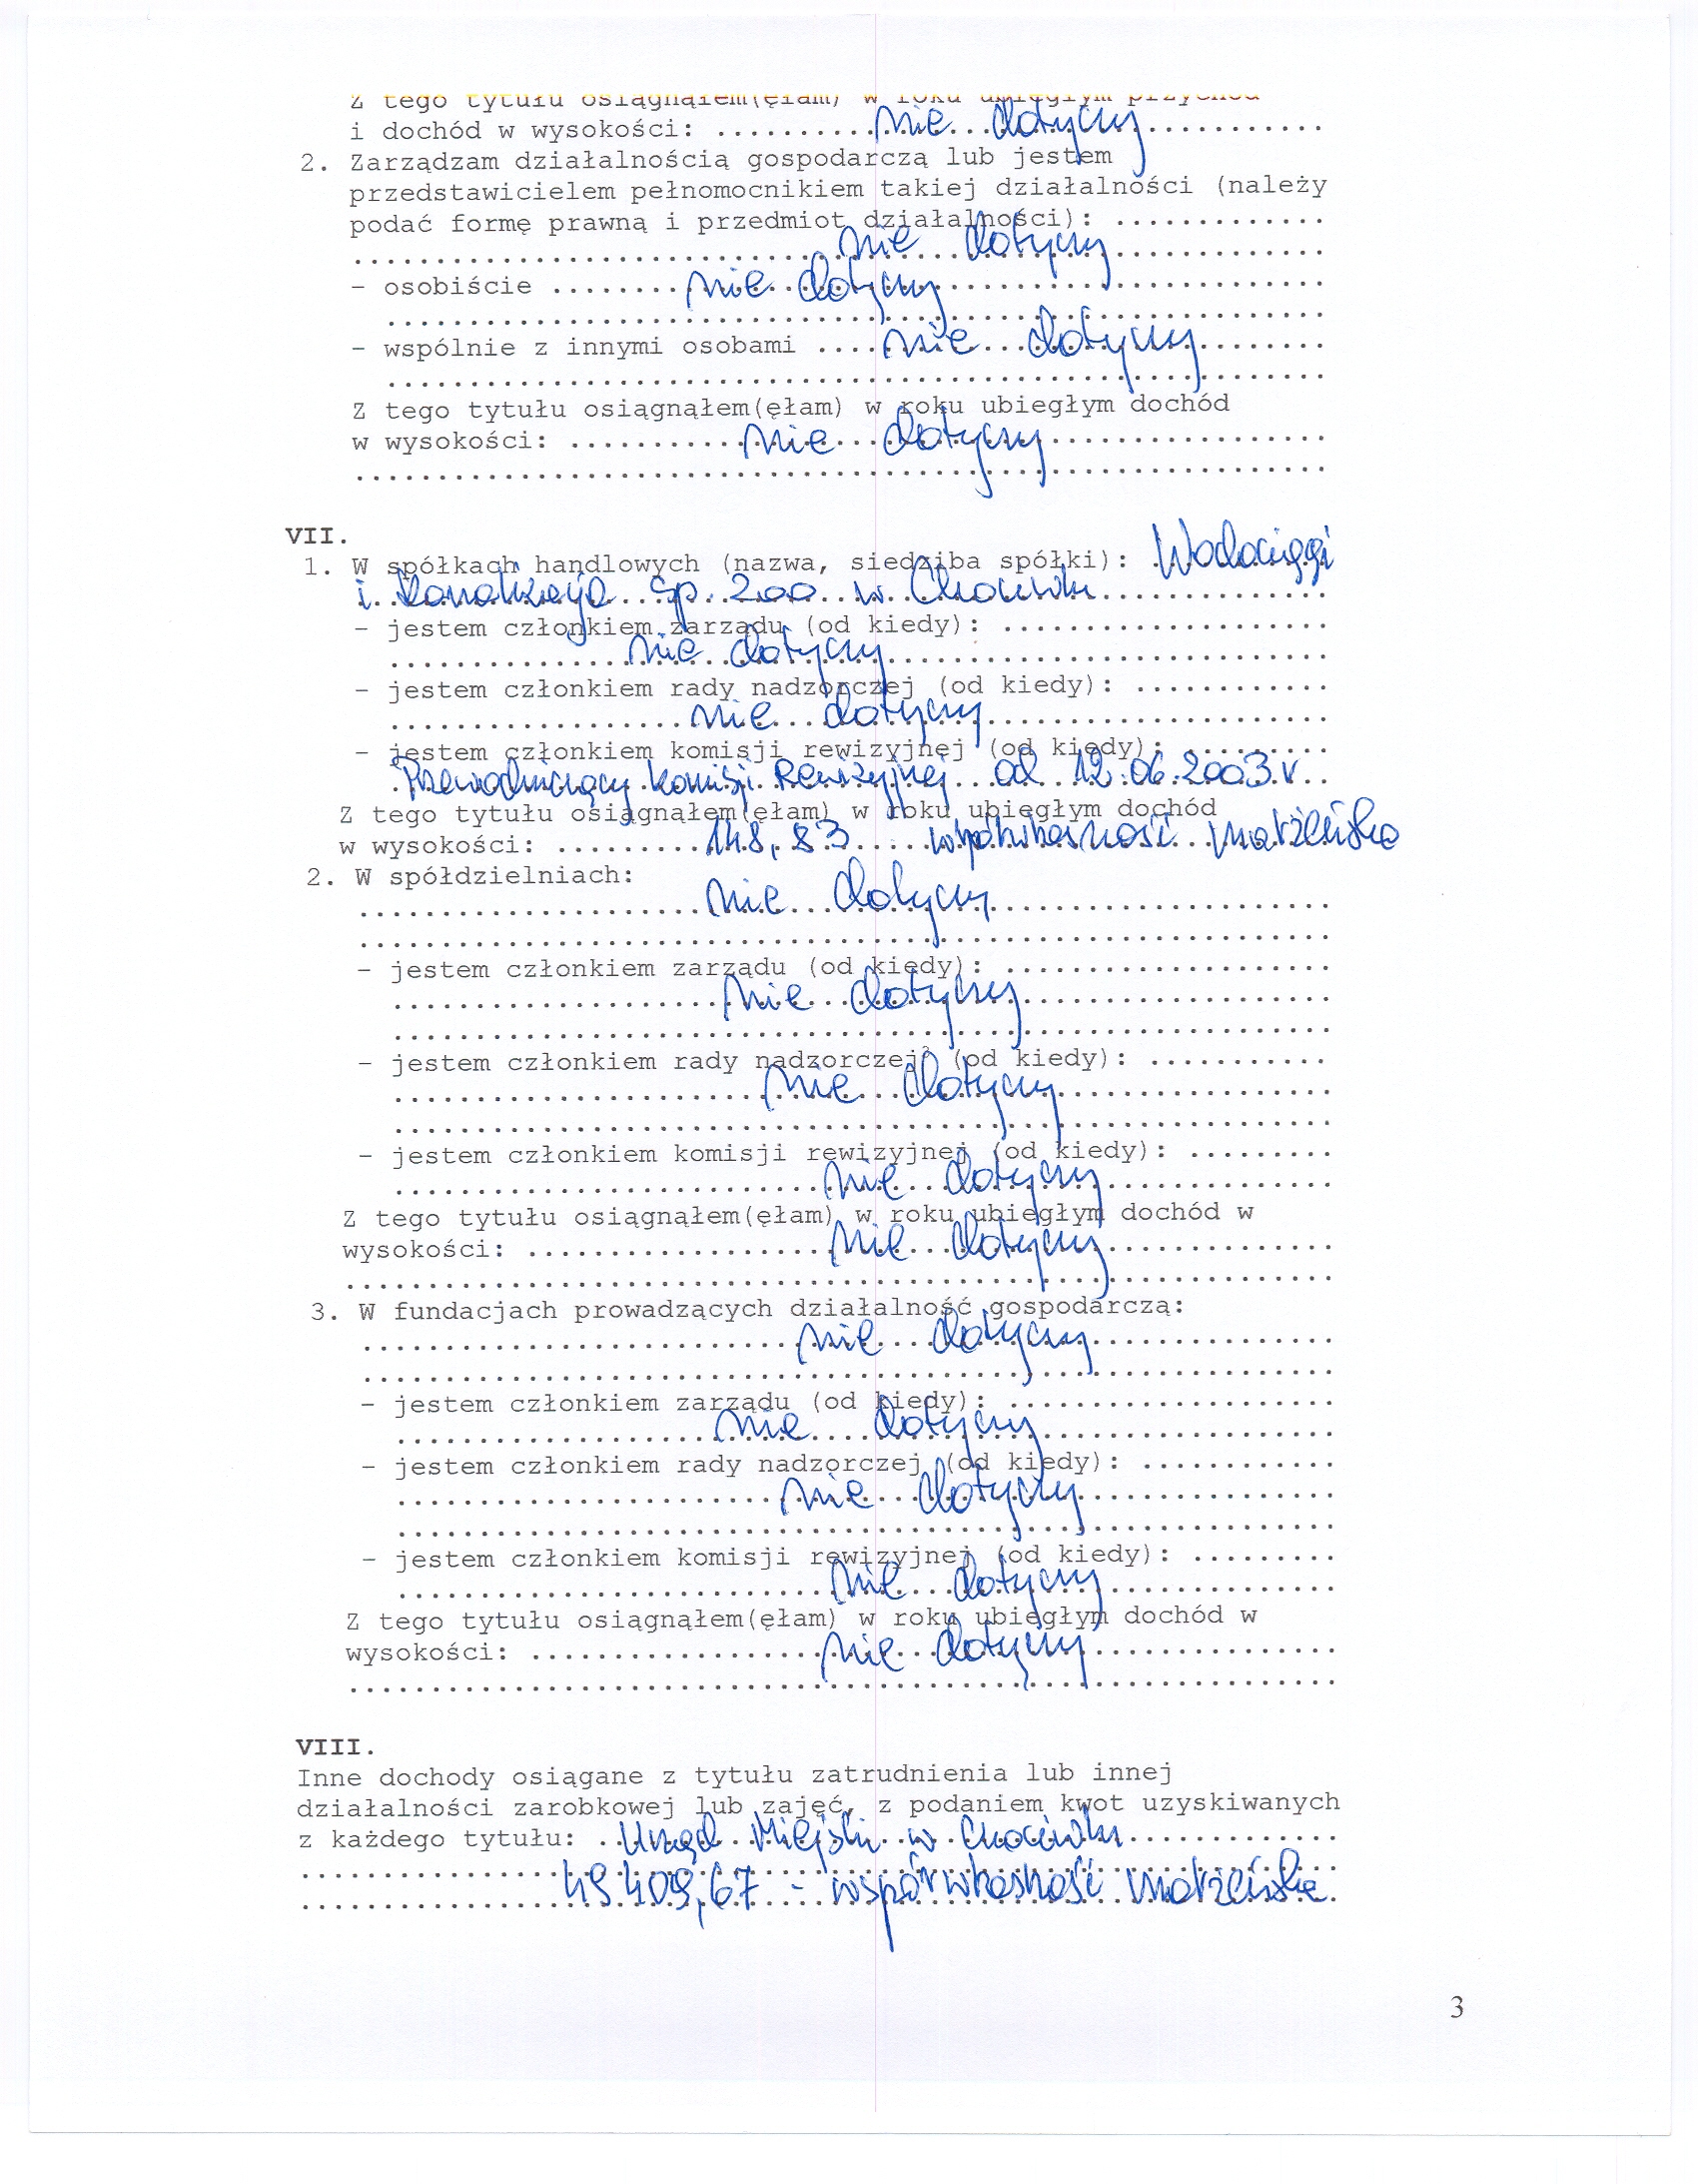 Z tego tytułu osiągnąłem(ęłam) w roku ubiegłym przychód
i dochód w wysokości: .......... nie dotyczy ..........
2. Zarządzam działalnością gospodarczą lub jestem
przedstawicielem pełnomocnikiem takiej działalności (należy
podać formę prawną i przedmiot działalności): .............
nie dotyczy
- osobiście ........ nie dotyczy
- wspólnie z innymi osobami .... nie dotyczy
Z tego tytułu osiągnąłem(ęłam) w roku ubiegłym dochód
w wysokości: .......... nie dotyczy
VII.
1. W spółkach handlowych (nazwa, siedziba spółki): Wodociągi
i Kanalizacja Sp. zoo w Chocianowie
- jestem członkiem zarządu (od kiedy): ....................
nie dotyczy
- jestem członkiem rady nadzorczej (od kiedy): ............
nie dotyczy
- jestem członkiem komisji rewizyjnej (od kiedy): .........
Przewodniczący Komisji Rewizyjnej od 12.06.2003.r
Z tego tytułu osiągnąłem(ęłam) w roku ubiegłym dochód
w wysokości: .......... 148,83 współwłasność małżeńska
2. W spółdzielniach:
nie dotyczy
- jestem członkiem zarządu (od kiedy): ....................
nie dotyczy
- jestem członkiem rady nadzorczej² (od kiedy): ...........
nie dotyczy
- jestem członkiem komisji rewizyjnej (od kiedy): .........
nie dotyczy
Z tego tytułu osiągnąłem(ęłam) w roku ubiegłym dochód w
wysokości: .......... nie dotyczy
3. W fundacjach prowadzących działalność gospodarczą:
nie dotyczy
- jestem członkiem zarządu (od kiedy): ....................
nie dotyczy
- jestem członkiem rady nadzorczej (od kiedy): ............
nie dotyczy
- jestem członkiem komisji rewizyjnej (od kiedy): .........
nie dotyczy
Z tego tytułu osiągnąłem(ęłam) w roku ubiegłym dochód w
wysokości: .......... nie dotyczy
VIII.
Inne dochody osiągane z tytułu zatrudnienia lub innej
działalności zarobkowej lub zajęć, z podaniem kwot uzyskiwanych
z każdego tytułu: .. Urząd Miejski w
49 409,67 - współwłasność małżeńska
3